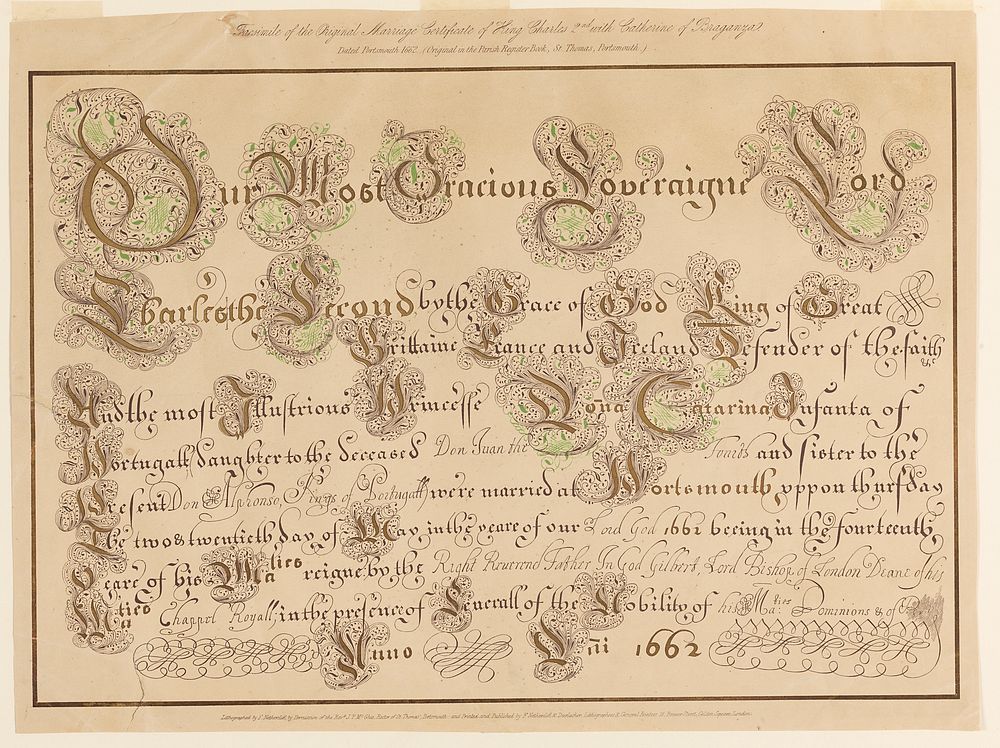 Facsimile of the Original Marriage Certificate of King Charles 2nd with Catherine of Braganza.
Dated Portsmouth 1662. (Original in the Parish Register Book, St. Thomas, Portsmouth.)
Our Most Gracious Soveraigne Lord
Charles the Second by the Grace of God King of Great
Brittaine France and Ireland Defender of the faith &c
And the most Illustrious Princesse Dona Catarina Infanta of
Portugall daughter to the deceased Don Juan the Fourth and sister to the
Present Don Alphonso, Kings of Portugall were married at Portsmouth uppon thursday
The two & twentieth day of May in the yeare of our Lord God 1661 beeing in the fourteenth
Yeare of his Maties reigne by the Right Reverend Father In God Gilbert, Lord Bishop of London Deane of his
Maties Chappel Royall, in the presence of Severall of the Nobility of his Maties: Dominions & of
Anno Dni 1662
Lithographed by F. Netherclift, by Permission of the Revd. J. P. Mc.Ghie, Rector of St. Thomas', Portsmouth and Printed and Published by F. Netherclift & Durlacher, Lithographers & General Printers, Brewer Street, Golden Square, London.